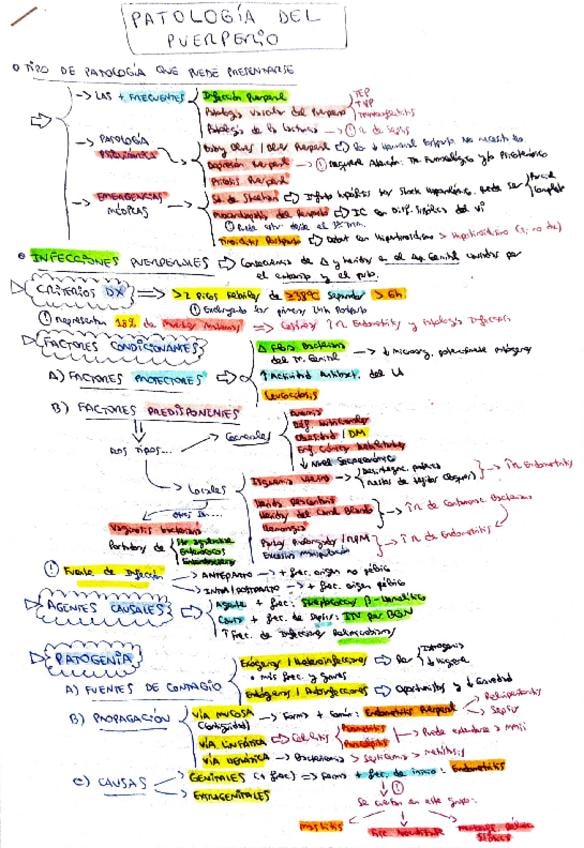 PATOLOGÍA DEL
PUERPERIO
TIPO DE PATOLOGÍA QUE PUEDE PRESENTARSE
→ LAS + FRECUENTES
Infección Puerperal
Patología Vascular del Puerperio
TEP
TVP
Tromboflebitis
Patología de la Lactancia → ① ↑R de Sepsis
→ PATOLOGÍA
PSIQUIÁTRICA
Baby Blues / Blues Puerperal
Depresión Puerperal → ① Requiere Atención: Tto Farmacológico y/o Psicoterápico
Psicosis Puerperal
→ EMERGENCIAS
MÉDICAS
Sd. de Sheehan → Infarto hipofisis por Shock Hipovolémico. Puede ser
Parcial
Completo
Miocardiopatía del Periparto → IC con Disf. Sistólica del VI
Tiroiditis Postparto → Debut con Hipertiroidismo > Hipotiroidismo
INFECCIONES PUERPERALES → Consecuencia de Δ y heridas en el Ap Genital causadas por
el embarazo y el parto.
CRITERIOS DX ⇒ >2 Picos Febriles de ≥38ºC Separados > 6h.
① Excluyendo las primeras 24h Postparto
① Representan 18% de Muertes Maternas ⇒ Cesárea ↑R Endometritis y Patología Infecciosa
FACTORES CONDICIONANTES
A) FACTORES PROTECTORES
Δ Flora Bacteriana
del Tr. Genital
↑ Actividad Antibact. del LA
Leucocitosis
B) FACTORES PREDISPONENTES
DOS TIPOS...
→ Generales
Anemia
Def. Nutricionales
Obesidad / DM
Enf. Crónicas Debilitantes
↓ Nivel Socioeconómico
→ Locales
Isquemia Uterina
→ ↑R Endometritis
Heridas del Canal Blando
Hemorragia
→ ↑R de Contaminac. Bacteriana
Parto Prolongado / RPM
Excesiva manipulación
→ ↑R de Endometritis
OTRAS SI...
Vaginosis bacteriana
Portadora de
Str agalactiae
Enterococos
Enterobacterias
① Fuente de Infección
→ ANTEPARTO → + frec. origen no pélvico
→ INTRA/POSTPARTO → + frec. origen pélvico
AGENTES CAUSALES
Agente + frec: Streptococo β-Hemolítico
Causa + frec. de Sepsis: ITU por BGN
↑ Frec. de Infecciones Polimicrobianas
PATOGENIA
A) FUENTES DE CONTAGIO
Exógenas / Heteroinfecciones → Por
Iatrogenia
↓ Higiene
+ más frec. y graves
Endógenas / Autoinfecciones → Oportunistas y ↓ Gravedad
B) PROPAGACIÓN
VÍA MUCOSA
(Contigüidad)
→ Forma + Común: Endometritis Puerperal
Pelviperitonitis
Sepsis
VÍA LINFÁTICA ⇒ Celulitis
Parametritis
Paracolpitis
→ Puede extenderse > MMII
VÍA HEMÁTICA → Bacteriemia > Septicemia > Metástasis
C) CAUSAS
→ GENITALES (+ frec) ⇒ Forma + frec. de inicio: Endometritis
→ EXTRAGENITALES
Se incluyen en este grupo:
Mastitis